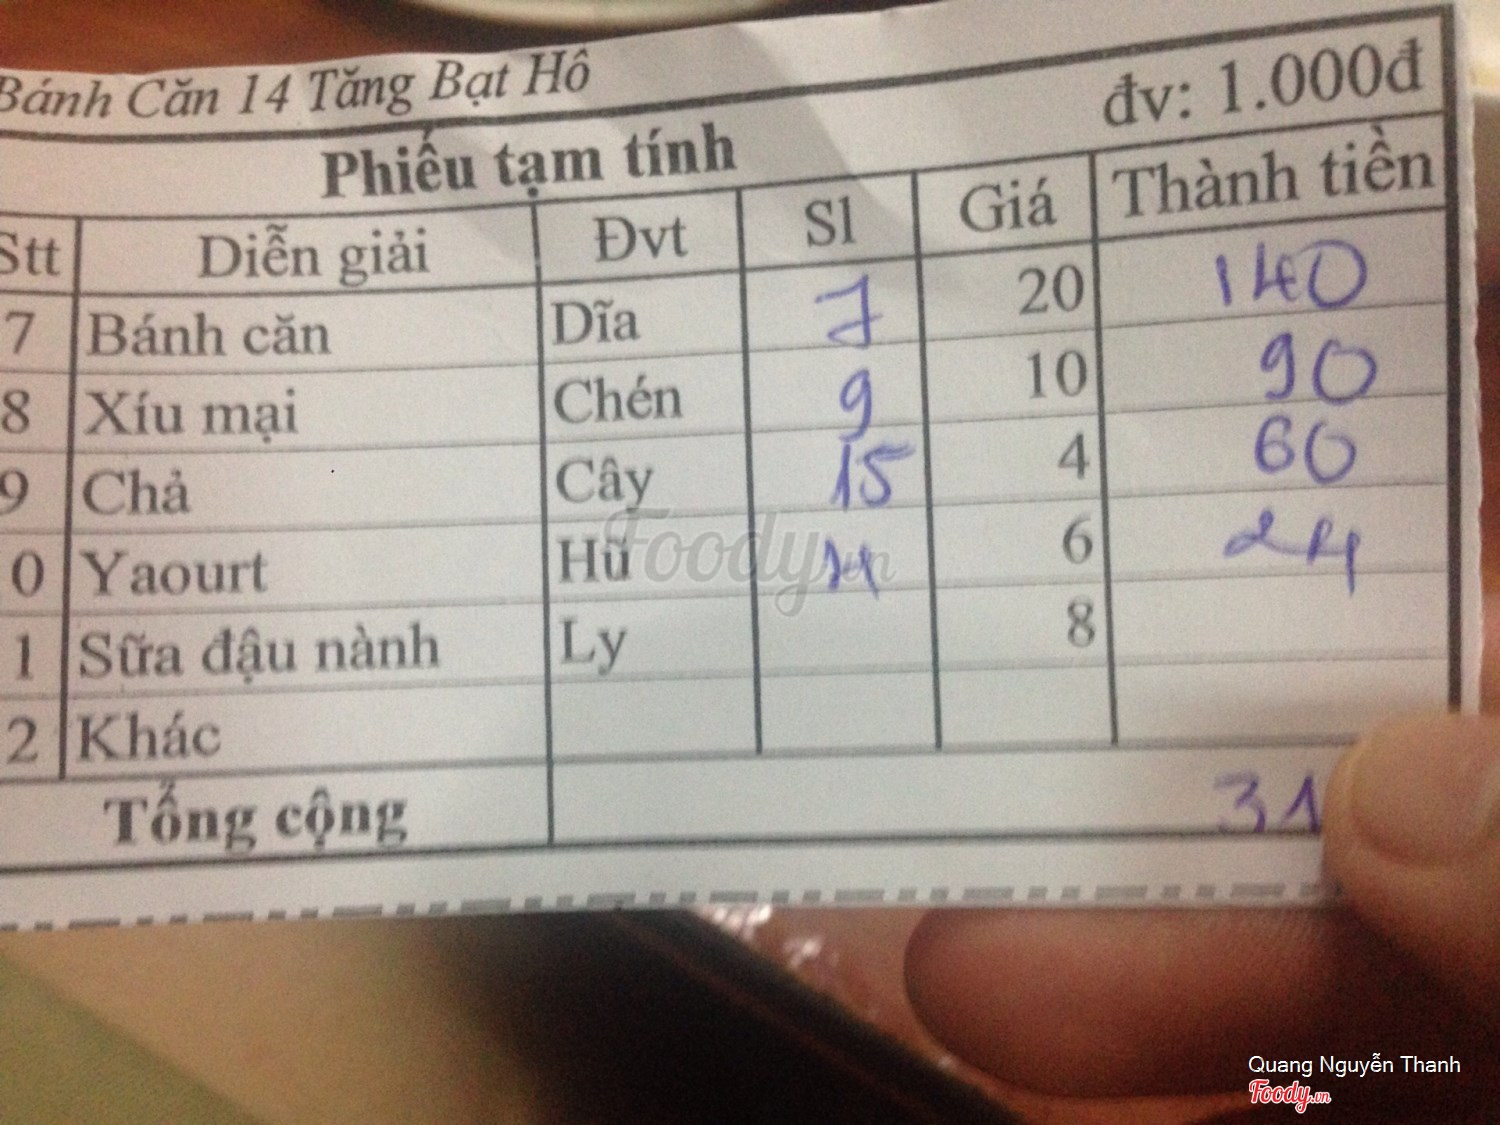 Bánh Căn 14 Tăng Bạt Hô
đv: 1.000đ
Phiếu tạm tính
Stt Diễn giải Đvt Sl Giá Thành tiền
7 Bánh căn Dĩa 7 20 140
8 Xíu mại Chén 9 10 90
9 Chả Cây 15 4 60
0 Yaourt Hũ 4 6 24
1 Sữa đậu nành Ly 8
2 Khác
Tổng cộng 31
Foody.vn
Quang Nguyễn Thanh
Foody.vn